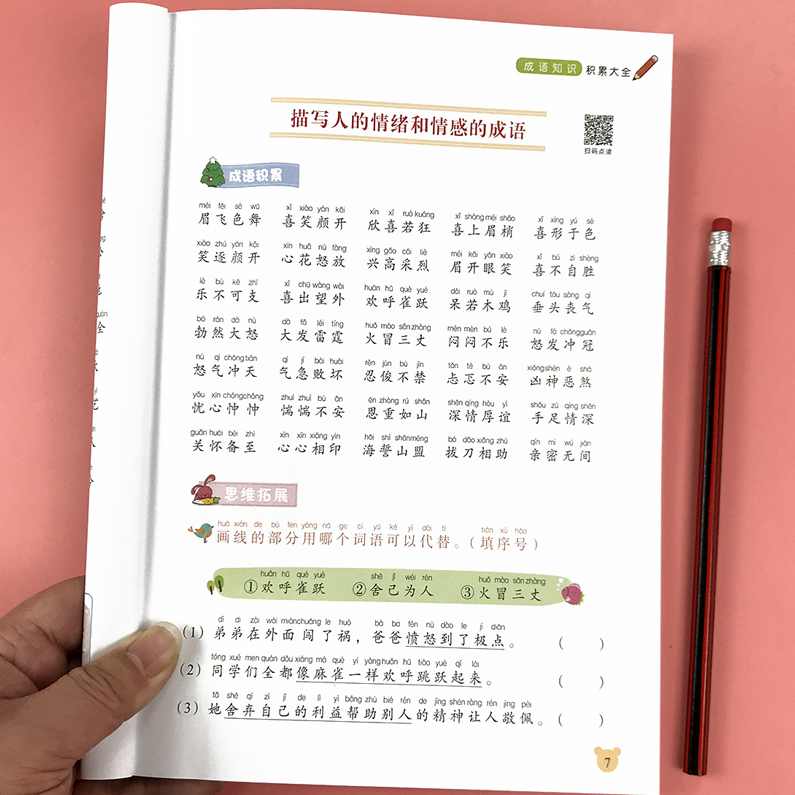 成语知识 积累大全
描写人的情绪和情感的成语
扫码点读
成语积累
méi fēi sè wǔ xǐ xiào yán kāi xīn xǐ ruò kuáng xǐ shàng méi shāo xǐ xíng yú sè
眉飞色舞 喜笑颜开 欣喜若狂 喜上眉梢 喜形于色
xiào zhú yán kāi xīn huā nù fàng xìng gāo cǎi liè méi kāi yǎn xiào xǐ bú zì shèng
笑逐颜开 心花怒放 兴高采烈 眉开眼笑 喜不自胜
lè bù kě zhī xǐ chū wàng wài huān hū què yuè dāi ruò mù jī chuí tóu sàng qì
乐不可支 喜出望外 欢呼雀跃 呆若木鸡 垂头丧气
bó rán dà nù dà fā léi tíng huǒ mào sān zhàng mèn mèn bú lè nù fà chōng guān
勃然大怒 大发雷霆 火冒三丈 闷闷不乐 怒发冲冠
nù qì chōng tiān qì jí bài huài rěn jùn bù jīn tǎn tè bù ān xiōng shén è shà
怒气冲天 气急败坏 忍俊不禁 忐忑不安 凶神恶煞
yōu xīn chōng chōng zhuì zhuì bù ān ēn zhòng rú shān shēn qíng hòu yì shǒu zú qíng shēn
忧心忡忡 惴惴不安 恩重如山 深情厚谊 手足情深
guān huái bèi zhì xīn xīn xiāng yìn hǎi shì shān méng bá dāo xiāng zhù qīn mì wú jiàn
关怀备至 心心相印 海誓山盟 拔刀相助 亲密无间
思维拓展
huà xiàn de bù fen yòng nǎ ge cí yǔ kě yǐ dài tì tián xù hào
画线的部分用哪个词语可以代替。（填序号）
huān hū què yuè shě jǐ wèi rén huǒ mào sān zhàng
①欢呼雀跃 ②舍己为人 ③火冒三丈
dì di zài wài miàn chuǎng le huò bà ba fèn nù dào le jí diǎn
（1）弟弟在外面闯了祸，爸爸愤怒到了极点。（ ）
tóng xué men quán dōu xiàng má què yí yàng huān hū tiào yuè qǐ lái
（2）同学们全都像麻雀一样欢呼跳跃起来。（ ）
tā shě qì zì jǐ de lì yì bāng zhù bié rén de jīng shén ràng rén jìng pèi
（3）她舍弃自己的利益帮助别人的精神让人敬佩。（ ）
7